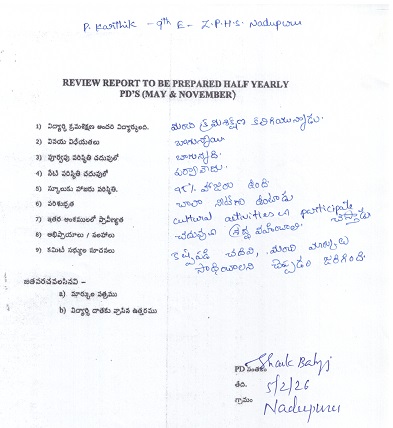 P. Karthik - 9th E - Z.P.H.S. Nadupuru
REVIEW REPORT TO BE PREPARED HALF YEARLY
PD'S (MAY & NOVEMBER)
1) విద్యార్థి క్రమశిక్షణ అందరి విద్యార్థులది. మంచి క్రమశిక్షణ కలిగియున్నాడు.
2) వినయ విధేయతలు బాగున్నాయి
3) పూర్వపు పరిస్థితి చదువులో బాగున్నది.
4) నేటి పరిస్థితి చదువులో పర్వాలేదు.
5) స్కూలుకు హాజరు పరిస్థితి. 95% హాజరు ఉంది
6) పరిశుభ్రత చాలా నీట్‌గా ఉంటాడు
7) ఇతర అంశములలో ప్రావీణ్యత cultural activities లో participate చేస్తాడు
8) అభిప్రాయాలు / సలహాలు చదువుపై శ్రద్ధ వహించాలి.
9) కమిటీ సభ్యుల సూచనలు కష్టపడి చదివి, మంచి మార్కులు
సాధించాలని చెప్పడం జరిగింది.
జతపరచవలసినవి -
a) మార్కుల పత్రము
b) విద్యార్థి దాతకు వ్రాసిన ఉత్తరము
PD సంతకం Shaik Babji
తేది. 5/2/26
గ్రామం Nadupuru